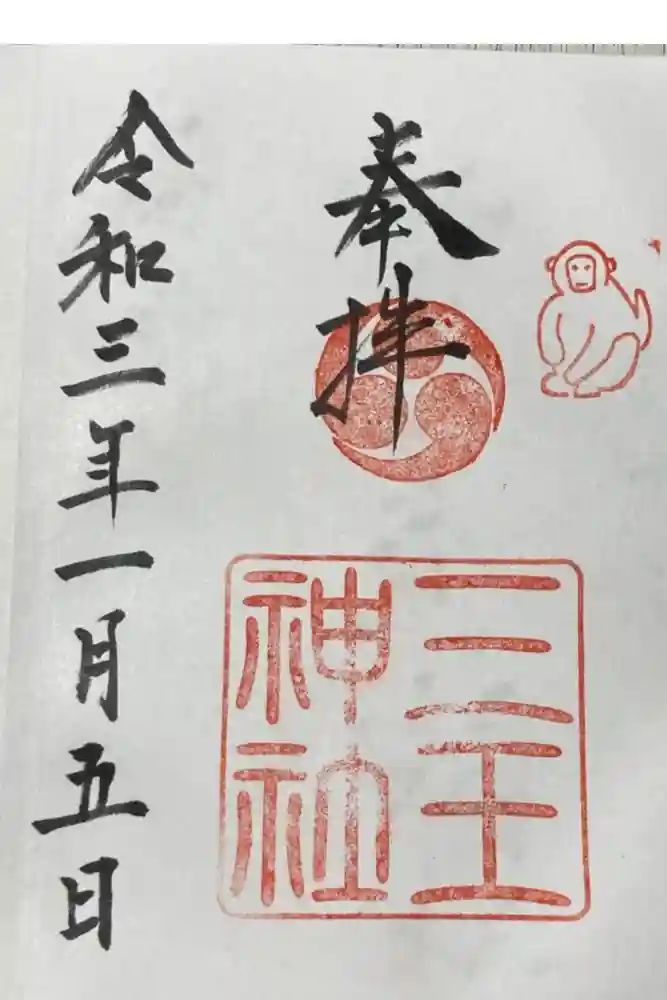 奉拝
三王
神社
令和三年一月五日